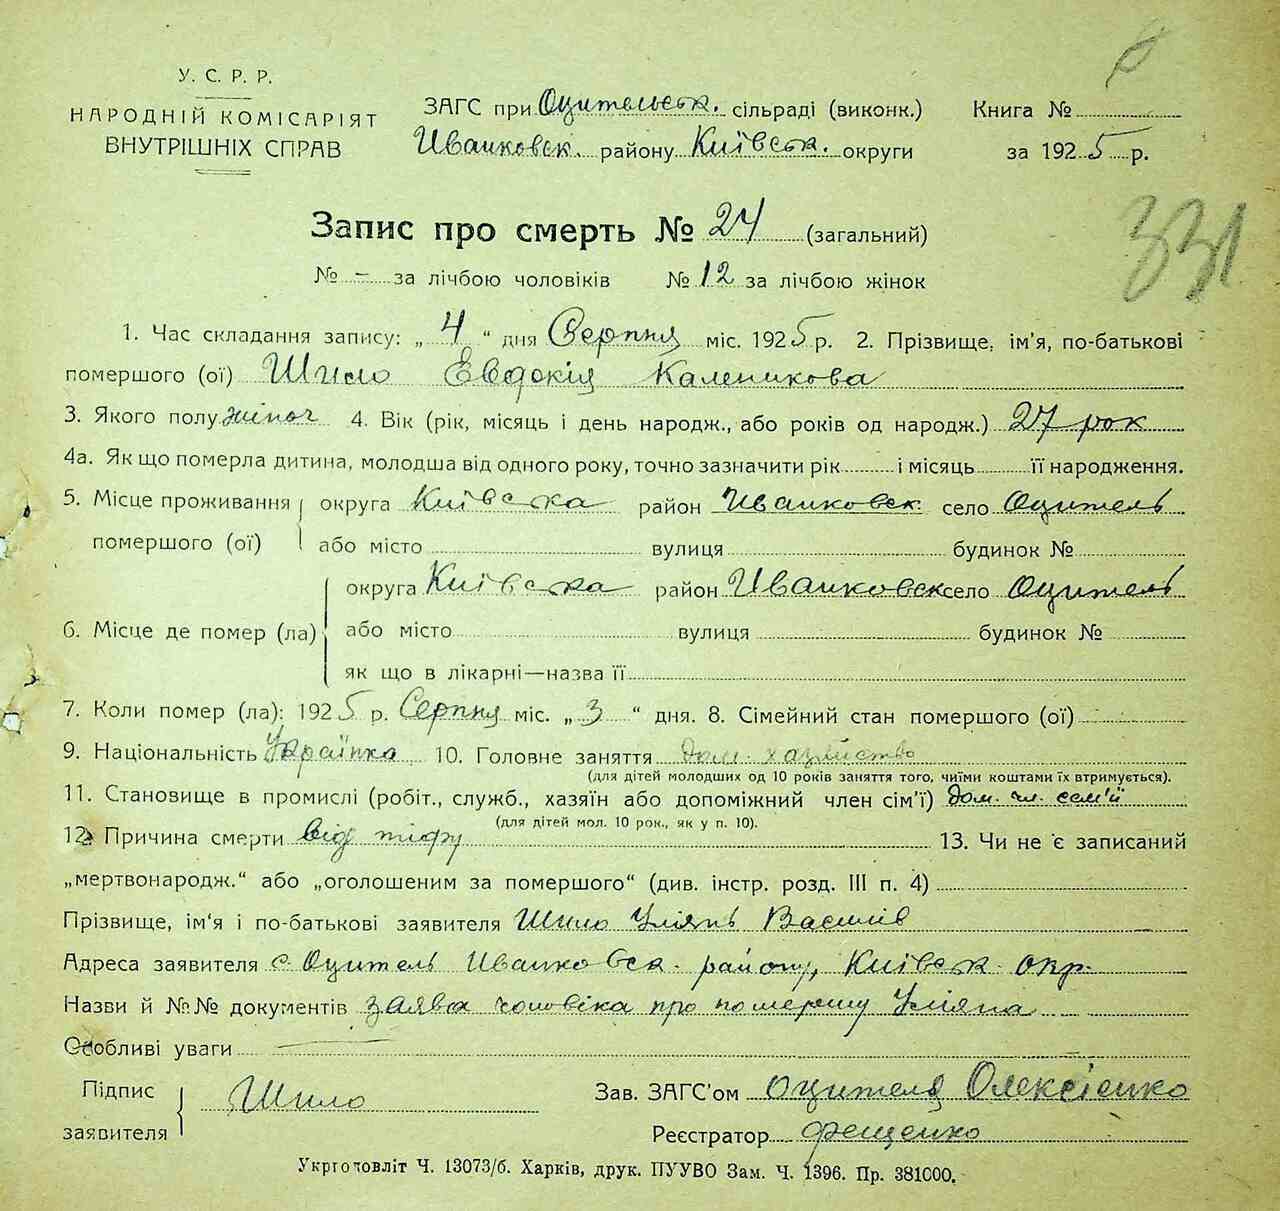 У. С. Р. Р.
НАРОДНІЙ КОМІСАРІЯТ
ВНУТРІШНІХ СПРАВ
ЗАГС при Оцительськ. сільраді (виконк.)
Иванковск. району Київськ. округи
Книга №
за 1925 р.
331
Запис про смерть № 24 (загальний)
№ - за лічбою чоловіків № 12 за лічбою жінок
1. Час складання запису: „ 4 “ дня Серпня міс. 1925 р. 2. Прізвище, ім'я, по-батькові
помершого (ої) Шило Евдокія Каленикова
3. Якого полу жіноч 4. Вік (рік, місяць і день народж., або років од народж.) 27 рок
4а. Як що померла дитина, молодша від одного року, точно зазначити рік і місяць її народження.
5. Місце проживання помершого (ої) округа Київська район Иванковск. село Оцитель
або місто вулиця будинок №
6. Місце де помер (ла) округа Київська район Иванковск село Оцитель
або місто вулиця будинок №
як що в лікарні—назва її
7. Коли помер (ла): 1925 р. Серпня міс. „ 3 “ дня. 8. Сімейний стан помершого (ої)
9. Національність Українка 10. Головне заняття дом. хазяйство
(для дітей молодших од 10 років заняття того, чиїми коштами їх втримується).
11. Становище в промислі (робіт., служб., хазяїн або допоміжний член сім'ї) дом. чл. сем'и
(для дітей мол. 10 рок., як у п. 10).
12. Причина смерти від тіфу 13. Чи не є записаний
„мертвонародж.“ або „оголошеним за помершого“ (див. інстр. розд. III п. 4)
Прізвище, ім'я і по-батькові заявителя Шило Уліянъ Василів
Адреса заявителя с. Оцитель Иванковск. району, Київськ. окр.
Назви й №№ документів заява чоловіка про помершу Уліяна
Особливі уваги
Підпис заявителя Шило
Зав. ЗАГС'ом Оцителя Олексієнко
Реєстратор Фещенко
Укрголовліт Ч. 13073/б. Харків, друк. ПУУВО Зам. Ч. 1396. Пр. 381000.